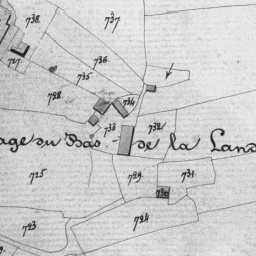 738.
737
727.
736.
735
728.
734
733
732.
age du Bas de la Land
725
729.
731.
730
723
724